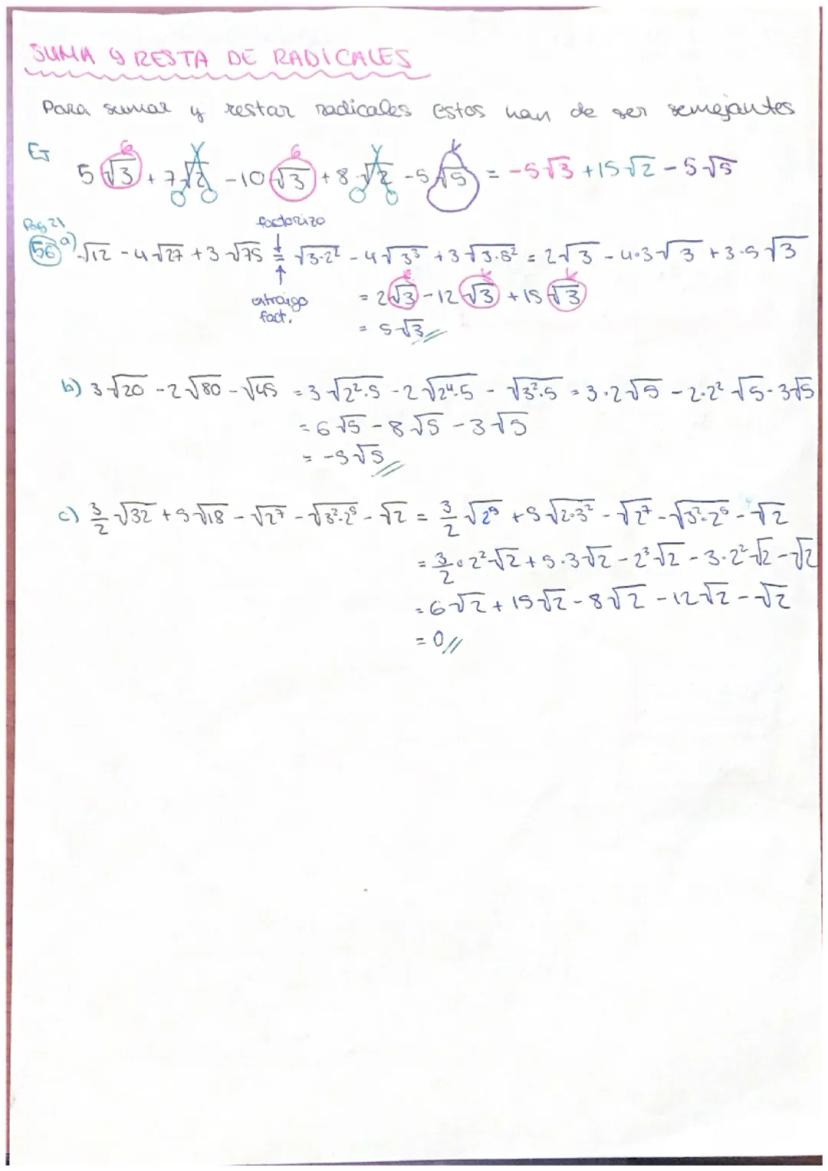 SUMA Y RESTA DE RADICALES
Para sumar y restar radicales estos han de ser semejantes
Ej 5√3 + 7√2 - 10√3 + 8√2 - 5√5 = -5√3 + 15√2 - 5√5
Pág 21
factorizo
56 a) √12 - 4√27 + 3√75 = √3·2² - 4√3³ + 3√3·5² = 2√3 - 4·3√3 + 3·5√3
extraigo fact.
= 2√3 - 12√3 + 15√3
= 5√3
b) 3√20 - 2√80 - √45 = 3√2²·5 - 2√2⁴·5 - √3²·5 = 3·2√5 - 2·2²√5 - 3√5
= 6√5 - 8√5 - 3√5
= -5√5
c) 3/2 √32 + 5√18 - √2⁷ - √3²·2⁵ - √2 = 3/2 √2⁵ + 5√2·3² - √2⁷ - √3²·2⁵ - √2
= 3/2 · 2²√2 + 5·3√2 - 2³√2 - 3·2²√2 - √2
= 6√2 + 15√2 - 8√2 - 12√2 - √2
= 0